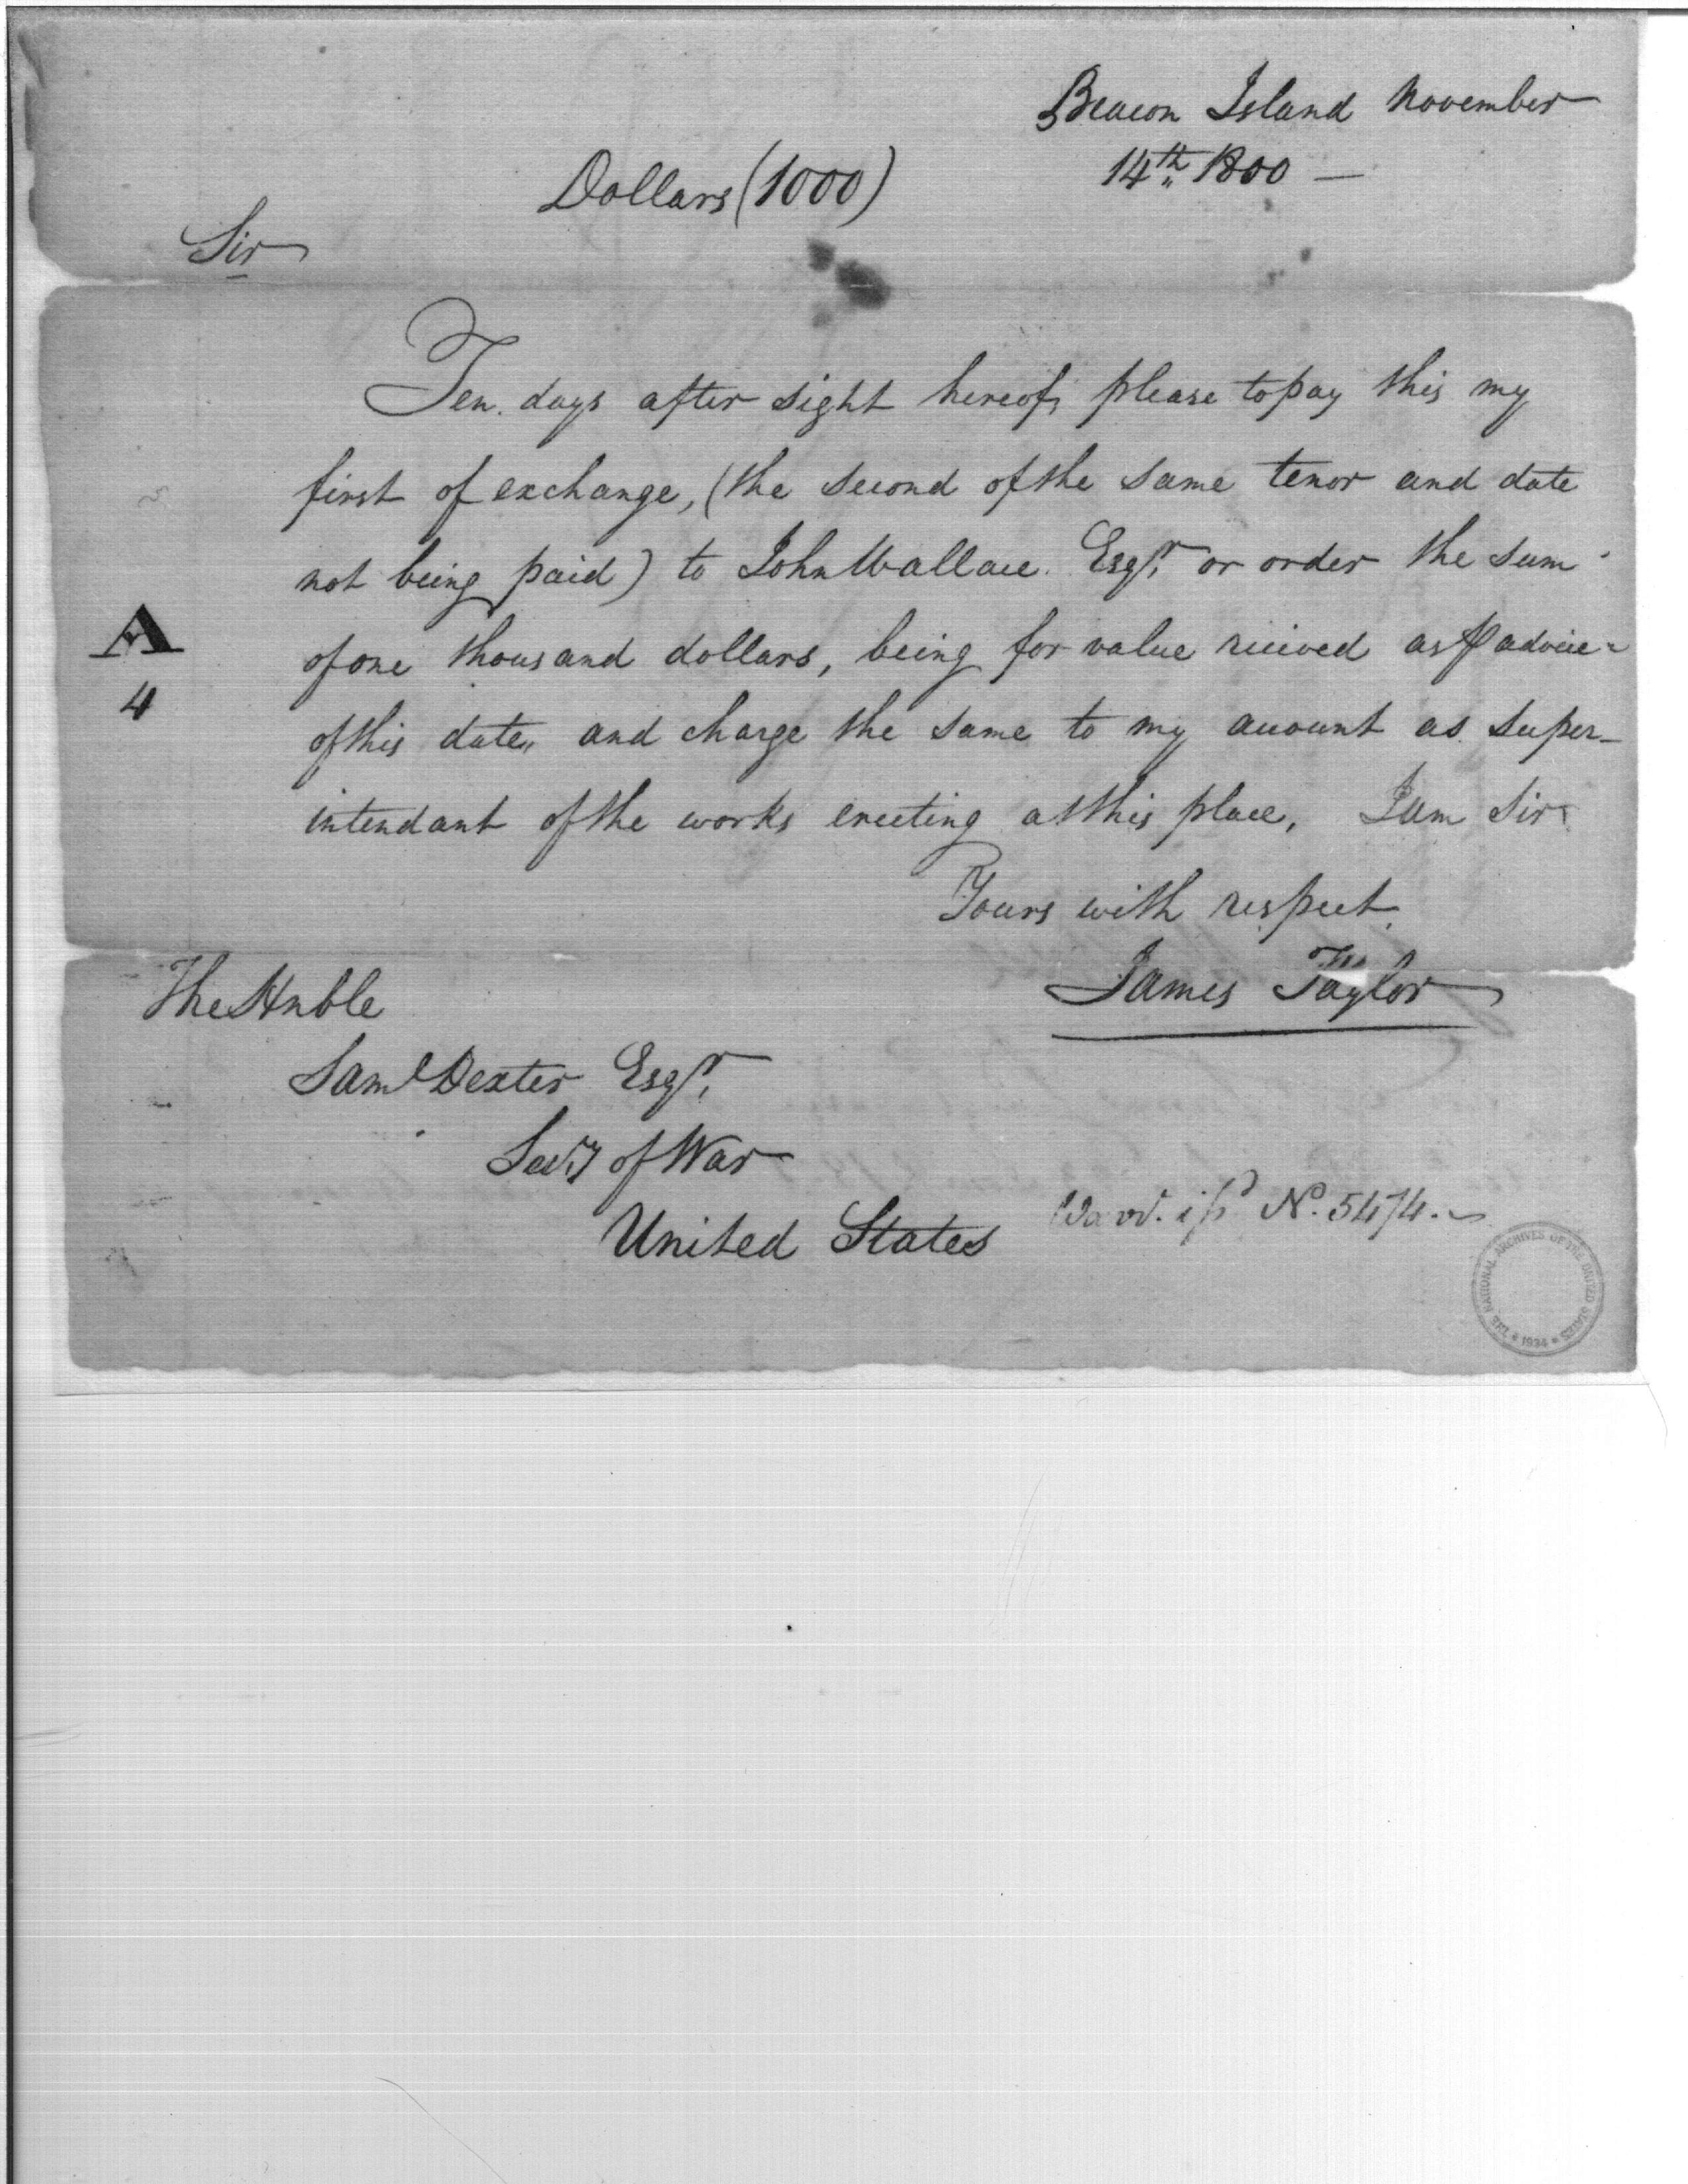 Beacon Island November
14th 1800 —
Dollars (1000)
Sir
Ten days after sight hereof, please to pay this my
first of exchange, (the second of the same tenor and date
not being paid) to John Wallace Esqr. or order the sum
of one thousand dollars, being for value recieved as ⅌ advice
of this date, and charge the same to my account as super-
A
4
intendant of the works erecting at this place, I am Sir
Yours with respect
James Taylor
The Hnble
Saml Dexter Esqr.
Secry of War
United States
No. 5474.
THE NATIONAL ARCHIVES OF THE UNITED STATES * 1934 *